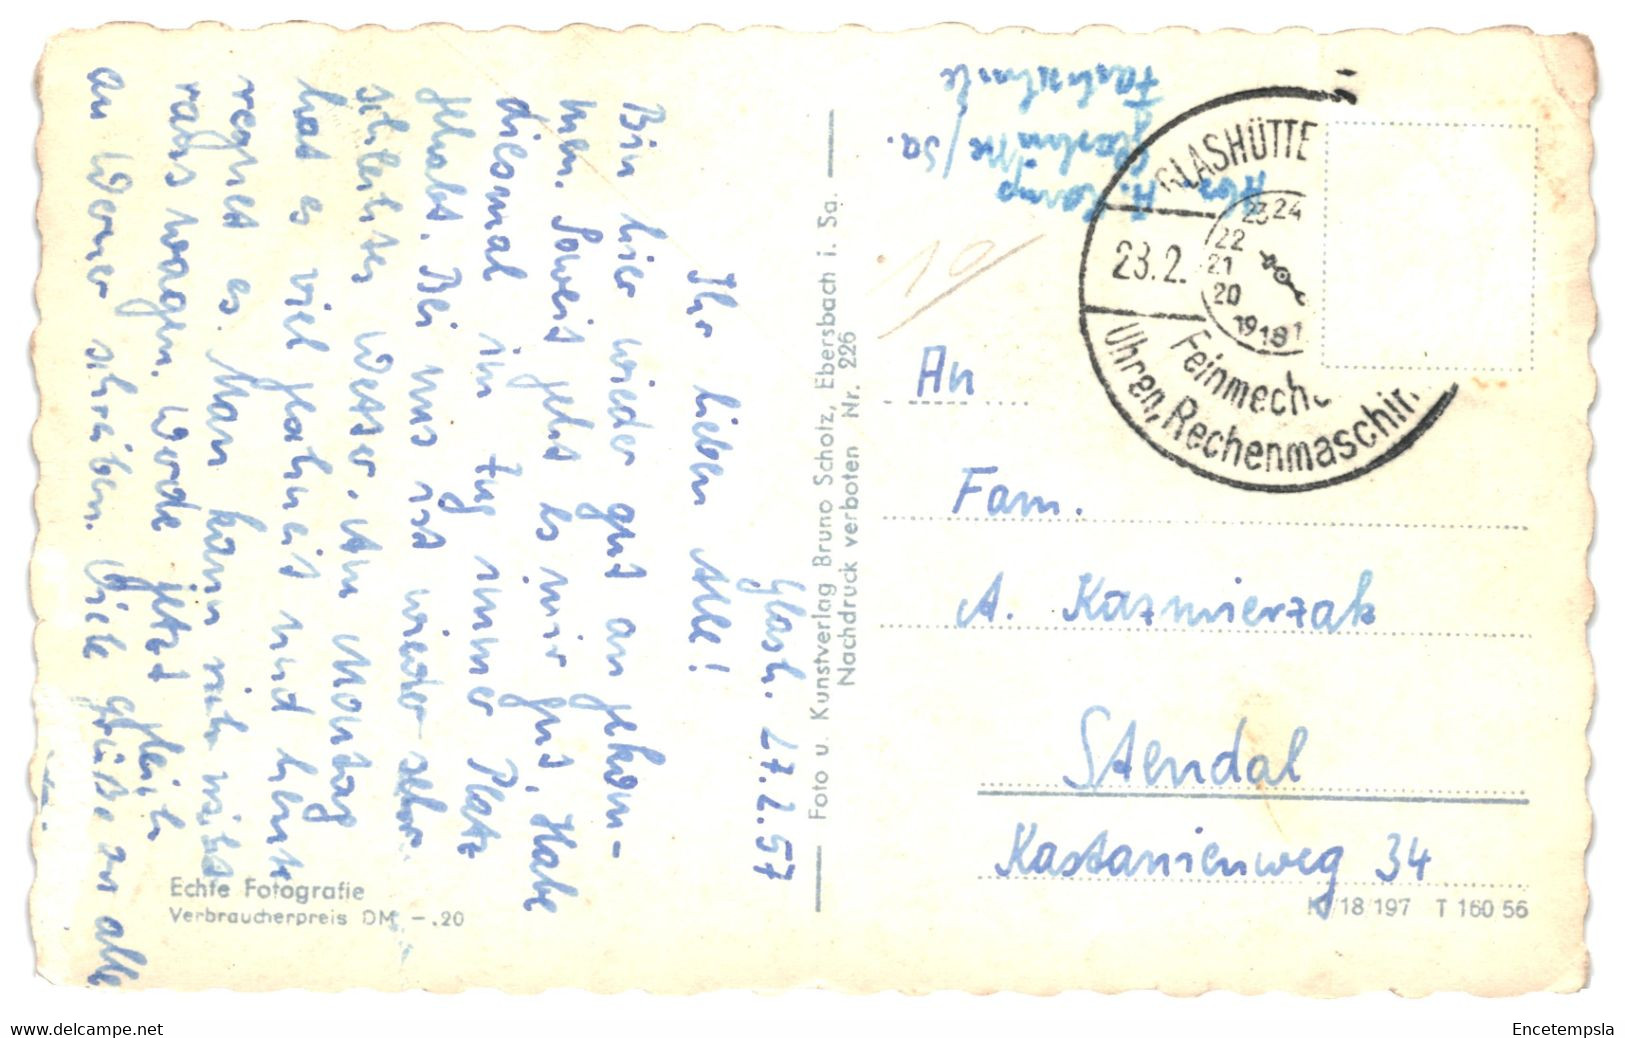 Glash. 27.2.57
Ihr lieben Alle!
Bin hier wieder gut angekom-
men. Soweit geht es mir gut, Habe
diesmal im Zug immer Platz
gehabt. Bei uns ist wieder sehr
schlechtes Wetter. Am Montag
hat es viel geschneit und heute
regnet es. Man kann sich nicht
raus wagen. Werde jetzt gleich
an Werner schreiben. Viele Grüße an alle
Echte Fotografie
Verbraucherpreis DM –.20
Foto u. Kunstverlag Bruno Scholz, Ebersbach i. Sa.
Nachdruck verboten Nr. 226
Abs.
A. Kamp
Glashütte/Sa.
Fachschule
10
GLASHÜTTE
28.2.
23 24
22
21
20
19 18 1
Feinmech
Uhren, Rechenmaschin
An
Fam.
A. Kazmierzak
Stendal
Kastanienweg 34
18 197 T 160 56
www.delcampe.net
Encetempsla